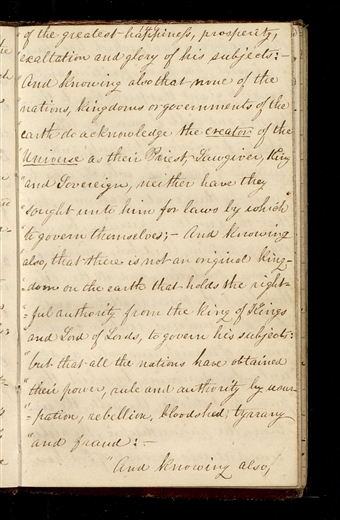 of the greatest happiness, prosperity,
exaltation and glory of his subjects:-
And knowing also that none of the
nations, kingdoms or governments of the
earth do acknowledge the creator of the
Universe as their Priest, Lawgiver, King
"and Sovereign, neither have they
"sought unto him for laws by which
"to govern themselves;- And knowing
also, that there is not an original king-
"dom on the earth that holds the right-
"ful authority from the King of Kings
and Lord of Lords, to govern his subjects:
"but that all the nations have obtained
"their power, rule and authority by usur
"-pation, rebellion, bloodshed, tyranny
"and fraud:-
"And knowing also,